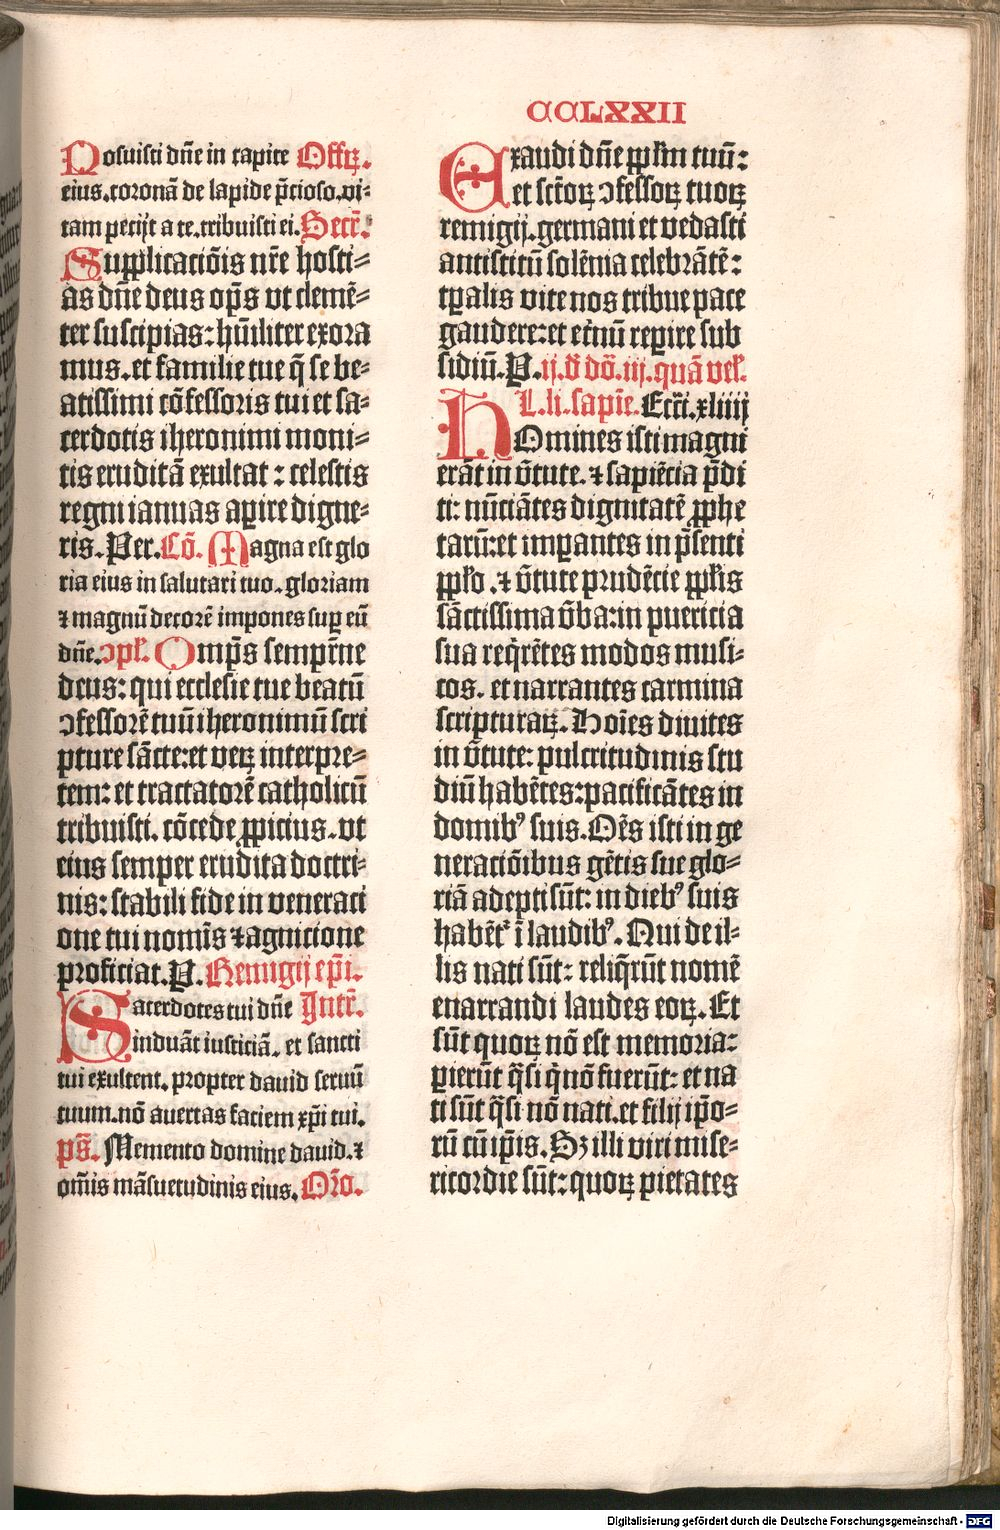 CCLXXII
Posuisti dñe in capite Offꝝ.
eius.coronā de lapide p̄cioso.vi⸗
tam pecijt a te.tribuisti ei. Secr̄.
Supplicaciōis nr̄e hosti⸗
as dñe deus op̄s vt clemē⸗
ter suscipias: hūiliter exora
mus. et familie tue q̄ se be⸗
atissimi cōfessoris tui et sa⸗
cerdotis iheronimi moni⸗
tis eruditā exultat: celestis
regni ianuas aꝑire digne⸗
ris. Per. Cō. Magna est glo
ria eius in salutari tuo. gloriam
⁊ magnū decorē impones suꝑ eū
dñe. ↄpl'. Omp̄s semp̄rne
deus: qui ecclesie tue beatū
ↄfessorē tuū iheronimū scri
pture sācte: et veꝝ interpre⸗
tem: et tractatorē catholicū
tribuisti. cōcede ꝓpicius. vt
eius semper erudita doctri⸗
nis: stabili fide in veneraci
one tui nomīs ⁊ agnicione
proficiat. P. Remigij ep̄i.
Sacerdotes tui dñe Intr̄.
induāt iusticiā. et sancti
tui exultent. propter dauid seruū
tuum. nō auertas faciem xp̄i tui.
ps̄. Memento domine dauid. ⁊
om̄is māsuetudinis eius. Or̄o.
Exaudi dñe ꝓpl'm tuū:
et sct̄oꝝ ↄfessoꝝ tuoꝝ
remigij. germani et vedasti
antistitū solēnia celebrātē:
tꝑalis vite nos tribue pace
gaudere: et et̄nū reꝑire sub
sidiū. P. ij. d̄ dō. iij. quā vel'.
L. li. sapīe. Ecci. xliiij
HOmines isti magni
erāt in v̄tute. ⁊ sapiēcia p̄di
ti: nūciātes dignitatē ꝓphe
tarū: et imꝑantes in p̄senti
ꝓpl'o. ⁊ v̄tute prudēcie ꝓpl'is
sāctissima v̄ba: in puericia
sua req̄rētes modos musi⸗
cos. et narrantes carmina
scripturaꝝ. Hoīes diuites
in v̄tute: pulcritudinis stu
diū habētes: pacificātes in
domibꝰ suis. Oēs isti in ge
neraciōibus gētis sue glo⸗
riā adepti sūt: in diebꝰ suis
habēt᷑ ī laudibꝰ. Qui de il⸗
lis nati sūt: reliq̄rūt nomē
enarrandi laudes eoꝝ. Et
sūt quoꝝ nō est memoria:
ꝑierūt q̄si q̄ nō fuerūt: et na
ti sūt q̄si nō nati. et filij ip̄o⸗
rū cū ip̄is. Sꝫ illi viri mise⸗
ricordie sūt: quoꝝ pietates
Digitalisierung gefördert durch die Deutsche Forschungsgemeinschaft - DFG